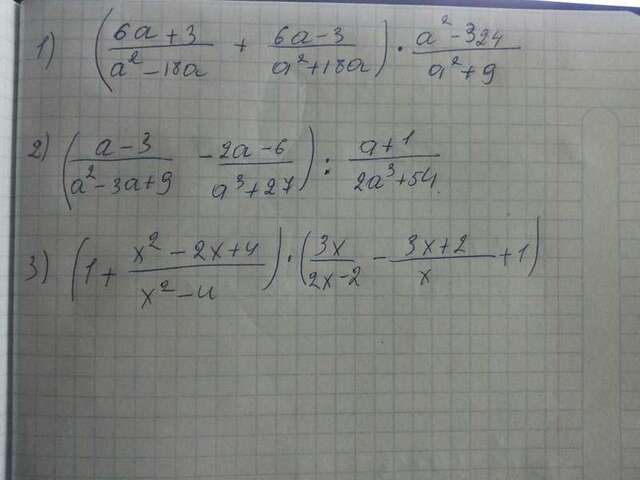 1) ((6a+3)/(a²-18a) + (6a-3)/(a²+18a)) · (a²-324)/(a²+9)
2) ((a-3)/(a²-3a+9) - (2a-6)/(a³+27)) : (a+1)/(2a³+54)
3) (1+(x²-2x+4)/(x²-4)) · (3x/(2x-2) - (3x+2)/x +1)